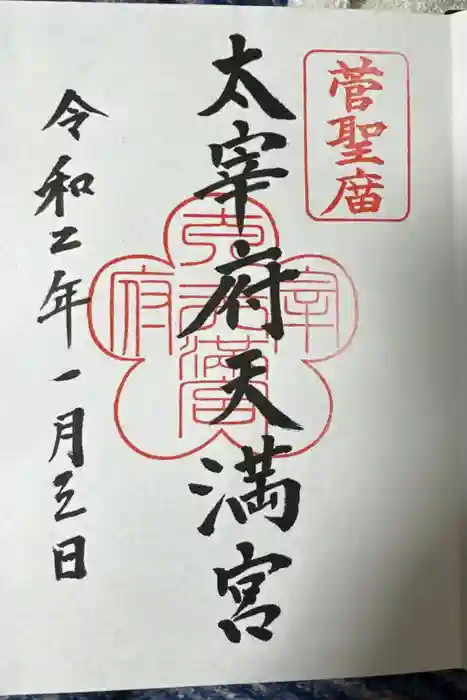 菅聖庿
太宰府天満宮
太宰府天満宮
令和二年一月三日